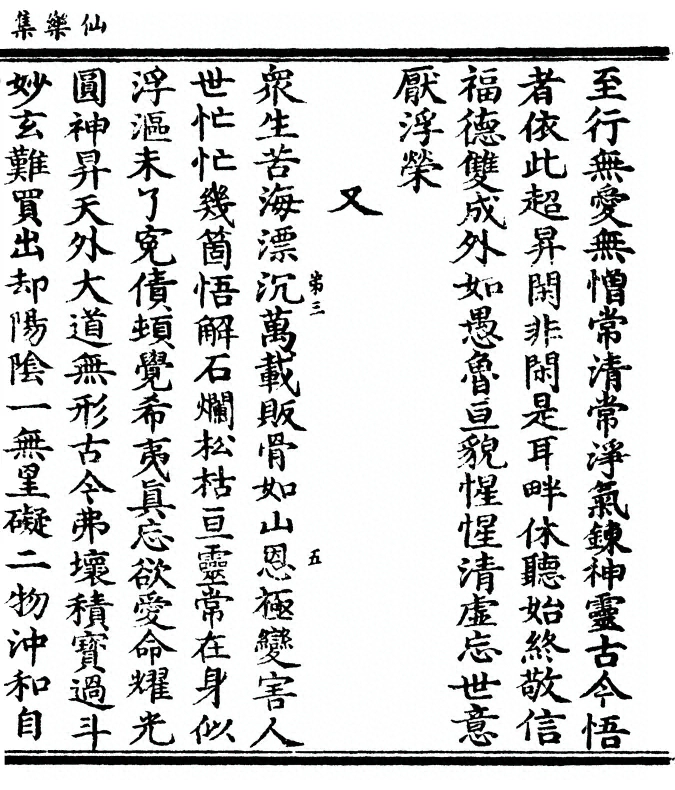 仙樂集
至行無愛無憎常清常淨氣鍊神靈古今悟
者依此超昇閑非閑是耳畔休聽始終敬信
福德雙成外如愚魯亘貌惺惺清虛忘世意
厭浮榮
又
第三
五
衆生苦海漂沉萬載販骨如山恩極變害人
世忙忙幾箇悟解石爛松枯亘靈常在身似
浮漚未了寃債頓覺希夷眞忘欲愛命耀光
圓神昇天外大道無形古今弗壞積寶過斗
妙玄難買出却陽陰一無罣礙二物沖和自